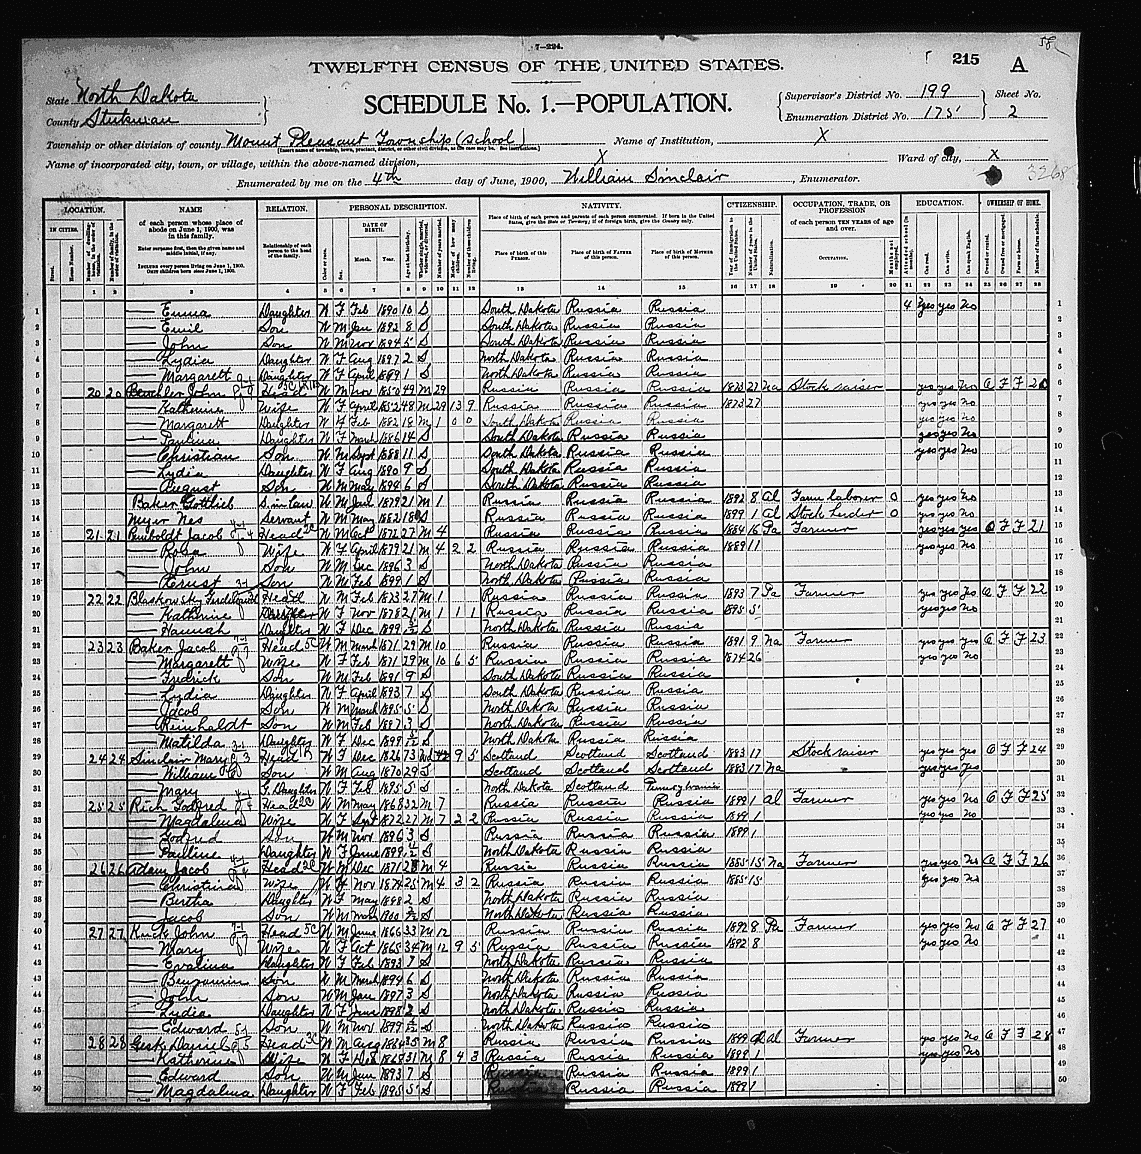 7—224.
215 A
TWELFTH CENSUS OF THE UNITED STATES.
State North Dakota
County Stutsman
SCHEDULE No. 1.—POPULATION.
Supervisor's District No. 199
Enumeration District No. 175
Sheet No. 2
Township or other division of county Mount Pleasant Township (school) Name of Institution, X
Name of incorporated city, town, or village, within the above-named division, X Ward of city, X
3268
Enumerated by me on the 4th day of June, 1900, William Sinclair, Enumerator.
LOCATION. NAME RELATION. PERSONAL DESCRIPTION. NATIVITY. CITIZENSHIP. OCCUPATION, TRADE, OR PROFESSION EDUCATION. OWNERSHIP OF HOME.
IN CITIES. of each person whose place of abode on June 1, 1900, was in this family. DATE OF BIRTH. of each person TEN YEARS of age and over.
Relationship of each person to the head of the family. Month. Year. Place of birth of this PERSON. Place of birth of FATHER of this person. Place of birth of MOTHER of this person. OCCUPATION.
1 2 3 4 5 6 7 8 9 10 11 12 13 14 15 16 17 18 19 20 21 22 23 24 25 26 27 28
1 — Emma Daughter W F Feb 1890 10 S South Dakota Russia Russia 4 yes yes No 1
2 — Emil Son W M Jan 1892 8 S South Dakota Russia Russia 2
3 — John Son W M Nov 1894 5 S South Dakota Russia Russia 3
4 — Lydia Daughter W F Aug 1897 2 S North Dakota Russia Russia 4
5 — Margarett Daughter W F April 1899 1 S North Dakota Russia Russia 5
6 20 20 John Head W M Nov 1850 49 M 29 Russia Russia Russia 1873 27 Na Stock raiser yes yes No O F F 20 6
7 — Katherine Wife W F April 1852 48 M 29 13 9 Russia Russia Russia 1873 27 yes yes no 7
8 — Margarett Daughter W F Feb 1882 18 M 1 0 0 South Dakota Russia Russia yes yes no 8
9 — Paulina Daughter W F March 1886 14 S South Dakota Russia Russia yes yes No 9
10 — Christian Son W M Sept 1888 11 S South Dakota Russia Russia yes yes No 10
11 — Lydia Daughter W F Aug 1890 9 S South Dakota Russia Russia 11
12 — August Son W M May 1894 6 S South Dakota Russia Russia 12
13 Baker Gottlieb S. in law W M Jan 1879 21 M 1 Russia Russia Russia 1892 8 Al Farm laborer 0 yes yes no 13
14 Servant W M May 1882 18 S Russia Russia Russia 1899 1 Al Stock herder 0 yes yes no 14
15 21 21 Jacob Head W M Oct 1872 27 M 4 Russia Russia Russia 1884 16 Pa Farmer yes yes yes O F F 21 15
16 — Rosa Wife W F April 1879 21 M 4 2 2 Russia Russia Russia 1889 11 yes yes no 16
17 — John Son W M Dec 1896 3 S North Dakota Russia Russia 17
18 — Son W M Feb 1899 1 S North Dakota Russia Russia 18
19 22 22 Blaskowsky Head W M Feb 1873 27 M 1 Russia Russia Russia 1893 7 Pa Farmer yes yes yes O F F 22 19
20 — Katherine W F Nov 1878 21 M 1 1 1 Russia Russia Russia 1895 5 yes yes no 20
21 — Hannah Daughter W F Dec 1899 5/12 S North Dakota Russia Russia 21
22 23 23 Baker Jacob Head W M March 1871 29 M 10 Russia Russia Russia 1891 9 Na Farmer yes yes yes O F F 23 22
23 — Margarett Wife W F Feb 1871 29 M 10 6 5 Russia Russia Russia 1874 26 yes yes no 23
24 — Fredrick Son W M Feb 1891 9 S South Dakota Russia Russia 24
25 — Lydia Daughter W F April 1893 7 S South Dakota Russia Russia 25
26 — Jacob Son W M March 1895 5 S North Dakota Russia Russia 26
27 — Reinhaldt Son W M Feb 1897 3 S North Dakota Russia Russia 27
28 — Matilda Daughter W F Dec 1899 5/12 S North Dakota Russia Russia 28
29 24 24 Sinclair Mary Head W F Dec 1826 73 Wd 9 5 Scotland Scotland Scotland 1883 17 Stock raiser yes yes yes O F F 24 29
30 — William Son W M Aug 1870 29 S Scotland Scotland Scotland 1883 17 Na yes yes yes 30
31 — Mary G. Daughter W F Feb 1895 5 S North Dakota Scotland Pennsylvania 31
32 25 25 Rich Godfred Head W M May 1868 32 M 7 Russia Russia Russia 1899 1 Al Farmer yes yes No O F F 25 32
33 — Magdalena Wife W F Sept 1872 27 M 7 2 2 Russia Russia Russia 1899 1 yes yes no 33
34 — Godfred Son W M Nov 1896 3 S Russia Russia Russia 1899 1 34
35 — Pauline Daughter W F June 1899 S North Dakota Russia Russia 35
36 26 26 Adam Jacob Head W M Dec 1871 28 M 4 Russia Russia Russia 1885 15 Na Farmer yes yes No O F F 26 36
37 — Christina Wife W F Nov 1874 25 M 4 3 2 Russia Russia Russia 1885 15 yes yes No 37
38 — Bertha Daughter W F May 1898 2 S North Dakota Russia Russia 38
39 — Jacob Son W M 1900 S North Dakota Russia Russia 39
40 27 27 John Head W M June 1866 33 M 12 Russia Russia Russia 1892 8 Pa Farmer yes yes No O F F 27 40
41 — Mary Wife W F Oct 1865 34 M 12 9 5 Russia Russia Russia 1892 8 yes yes No 41
42 — Evalina Daughter W F Feb 1893 7 S North Dakota Russia Russia 42
43 — Benjamin Son W M March 1894 6 S North Dakota Russia Russia 43
44 — John Son W M Jan 1897 3 S North Dakota Russia Russia 44
45 — Lydia Daughter W F June 1898 2 S North Dakota Russia Russia 45
46 — Edward Son W M Nov 1899 S North Dakota Russia Russia 46
47 28 28 Daniel Head W M Aug 1864 35 M 8 Russia Russia Russia 1899 Al Farmer yes yes No O F F 28 47
48 — Katherine Wife W F 1868 31 M 8 4 3 Russia Russia Russia 1899 1 yes yes No 48
49 — Edward Son W M Jun 1893 7 S Russia Russia Russia 1899 1 49
50 — Magdalena Daughter W F Feb 1895 5 S Russia Russia Russia 1899 1 50